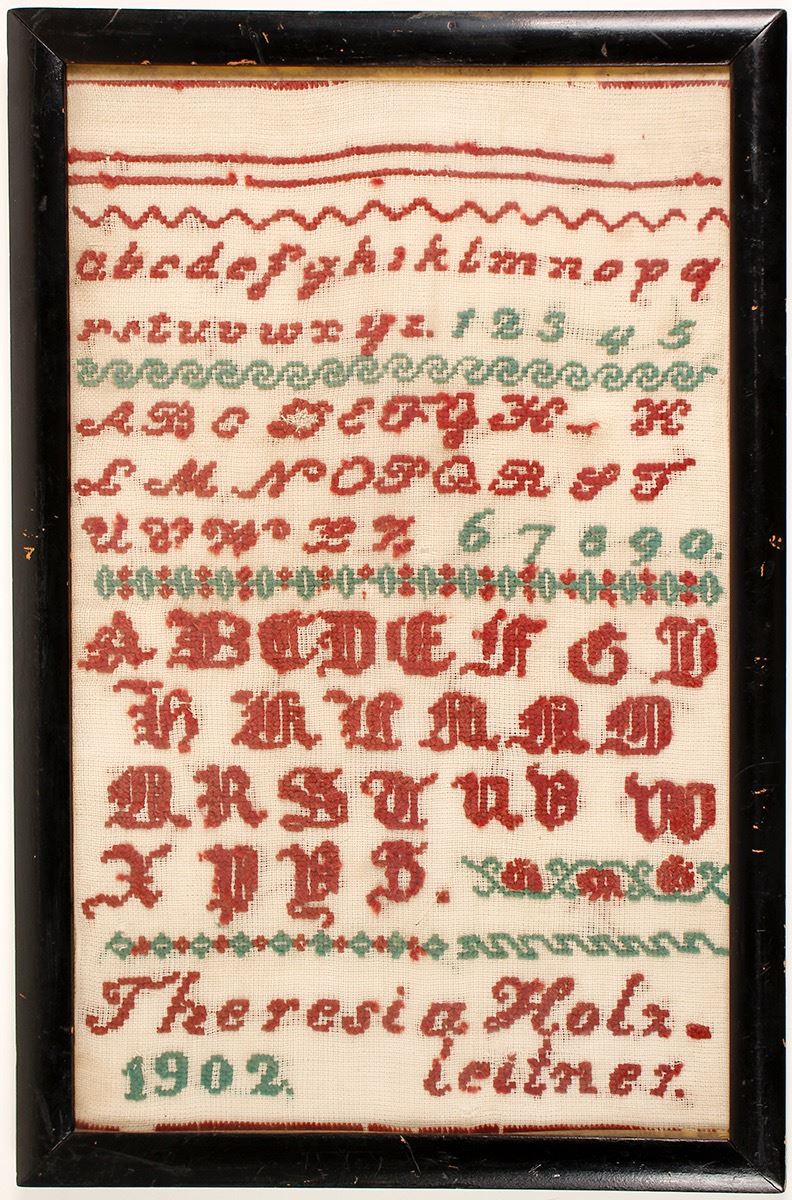 a b c d e f g h i k l m n o p q
r s t u v w x y z. 1 2 3 4 5
A B C D E F G H - K
L M N O P Q R S T
U V W X Z 6 7 8 9 0.
A B C D E F G D
H K L M N O
Q R S T U V W
X P Y Z.
Theresia Holz-
1902. leitner.